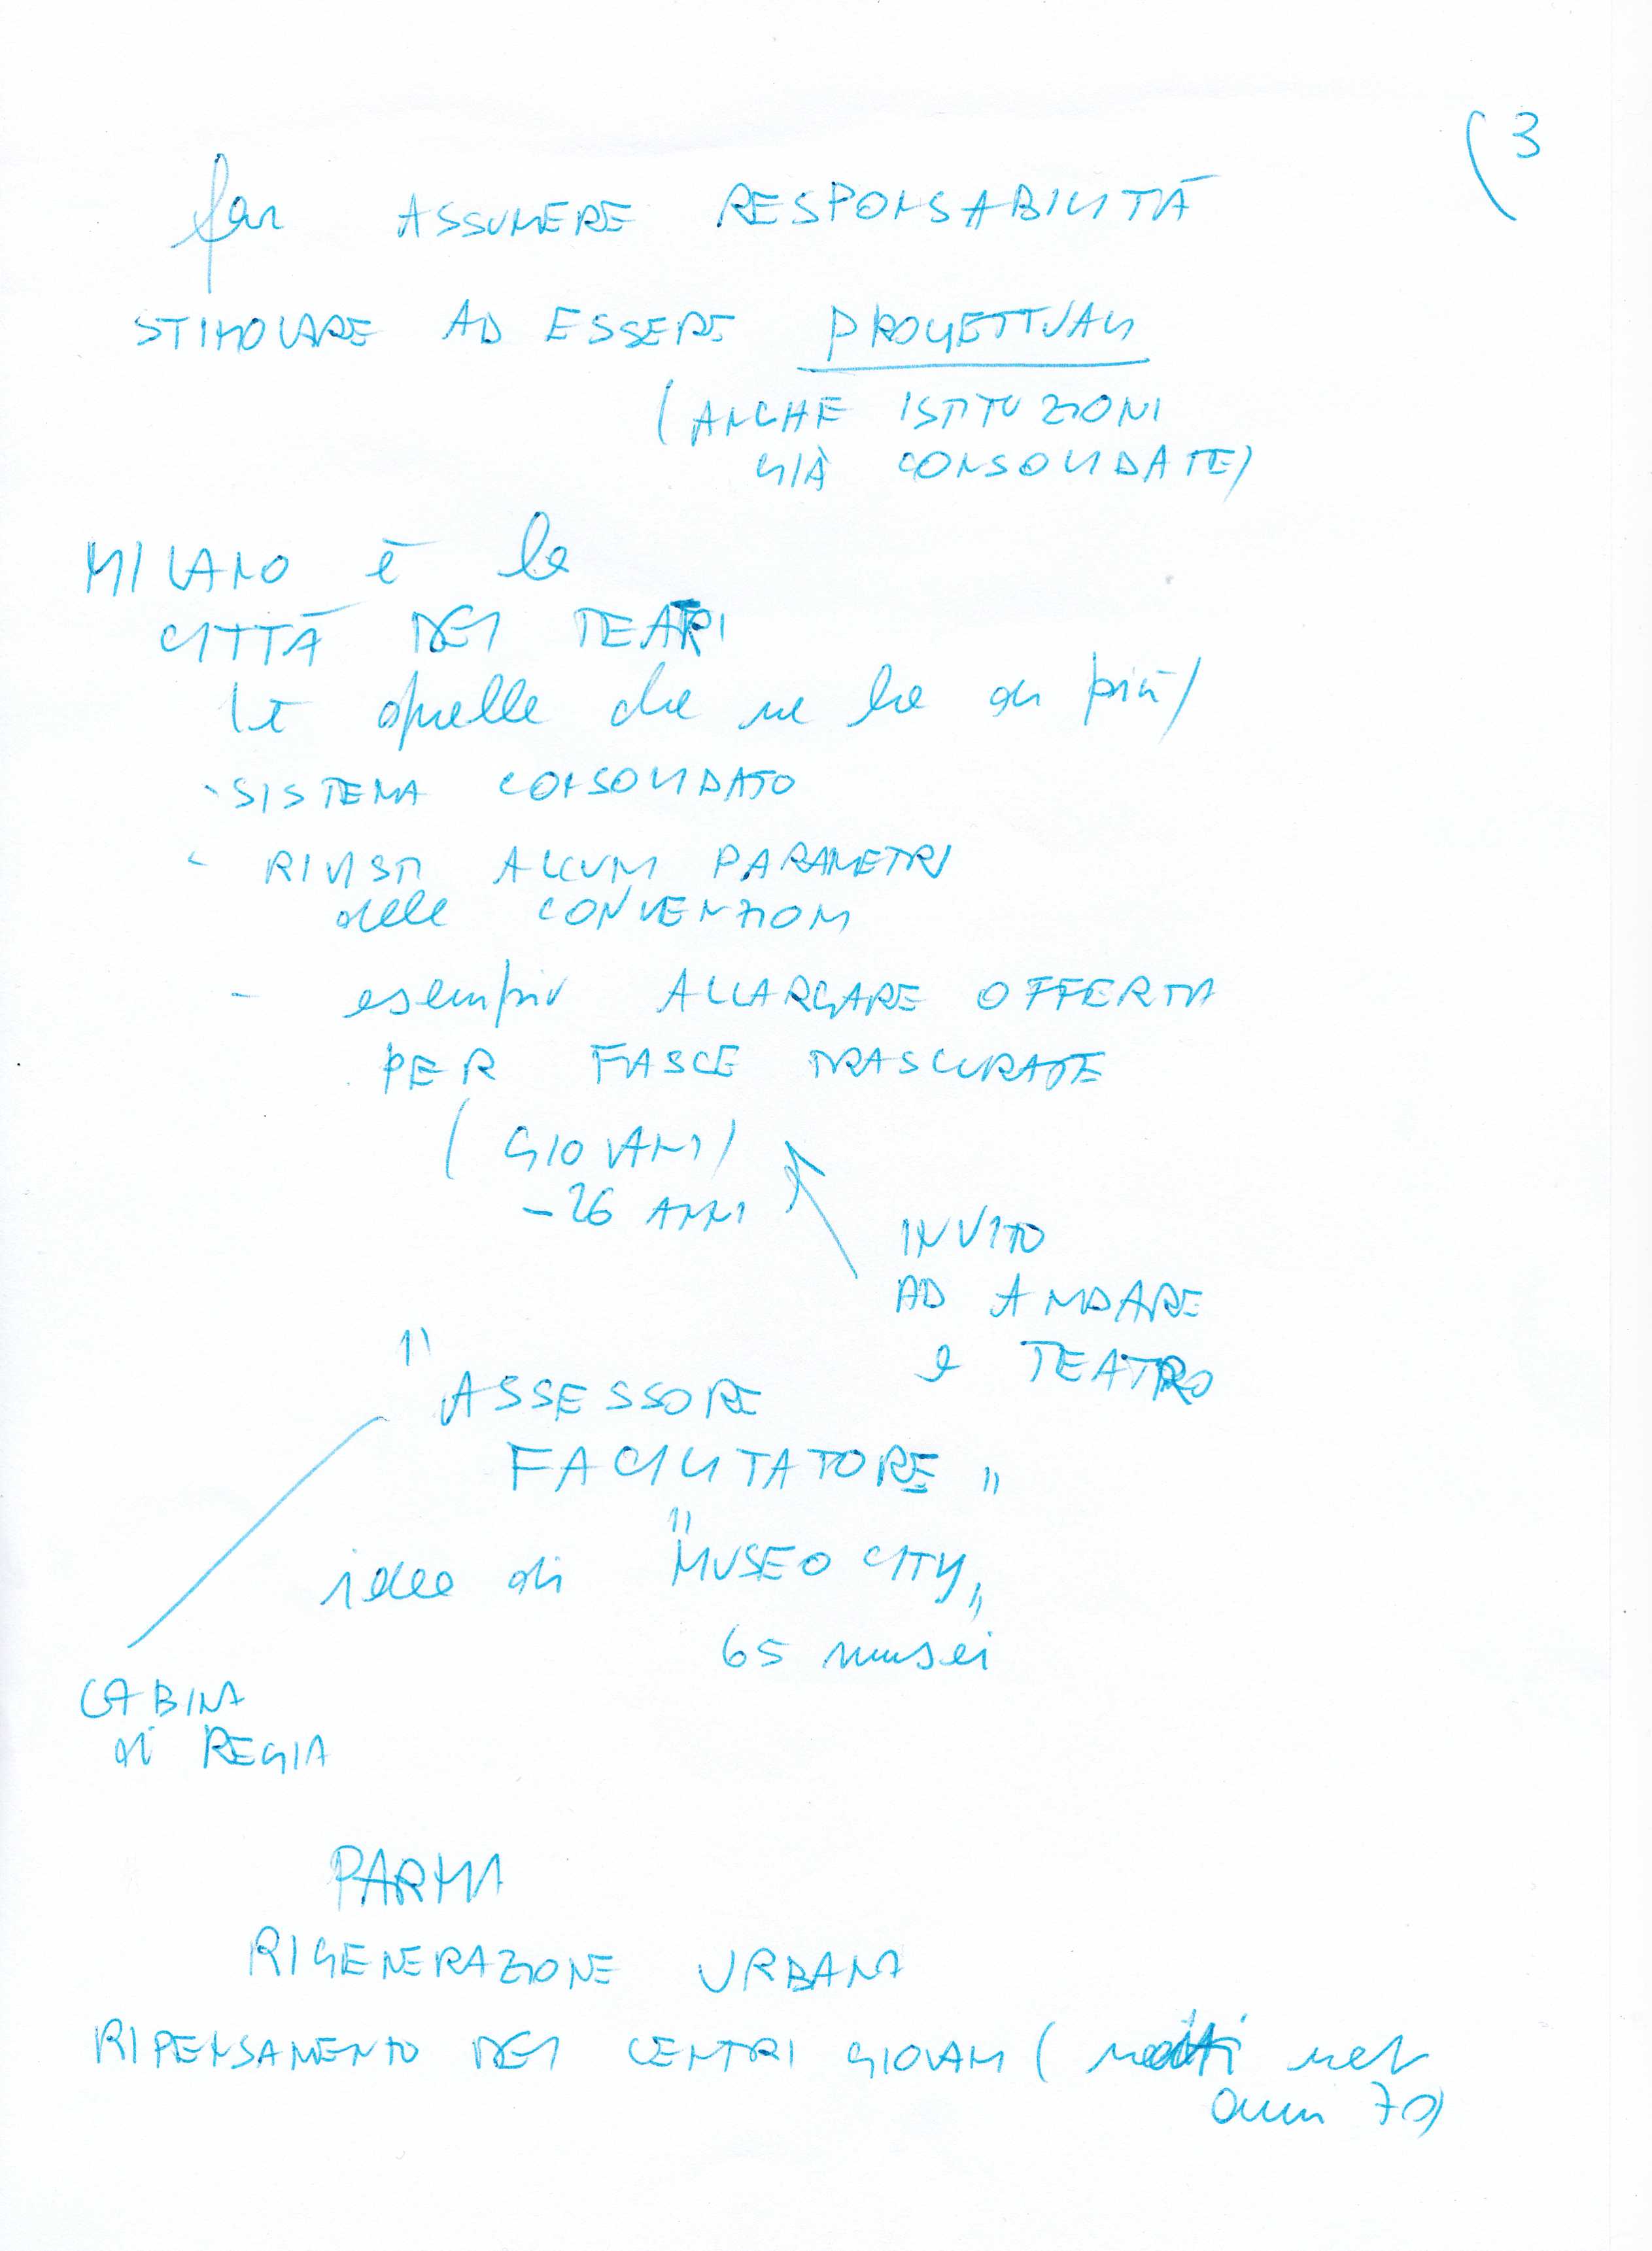 (3
far ASSUMERE RESPONSABILITÀ
STIMOLARE AD ESSERE PROGETTUALI
(ANCHE ISTITUZIONI
GIÀ CONSOLIDATE)
MILANO è la
CITTÀ DEI TEATRI
(è quella che ne ha di più)
- SISTEMA CONSOLIDATO
- RIVISTI ALCUNI PARAMETRI
delle CONVENZIONI
- esempio ALLARGARE OFFERTA
PER FASCE TRASCURATE
(GIOVANI)
-26 ANNI
INVITO
AD ANDARE
a TEATRO
"ASSESSORE
FACILITATORE"
idea di "MUSEO CITY"
65 musei
CABINA
di REGIA
PARMA
RIGENERAZIONE URBANA
RIPENSAMENTO DEI CENTRI GIOVANI (nati
anni 70)